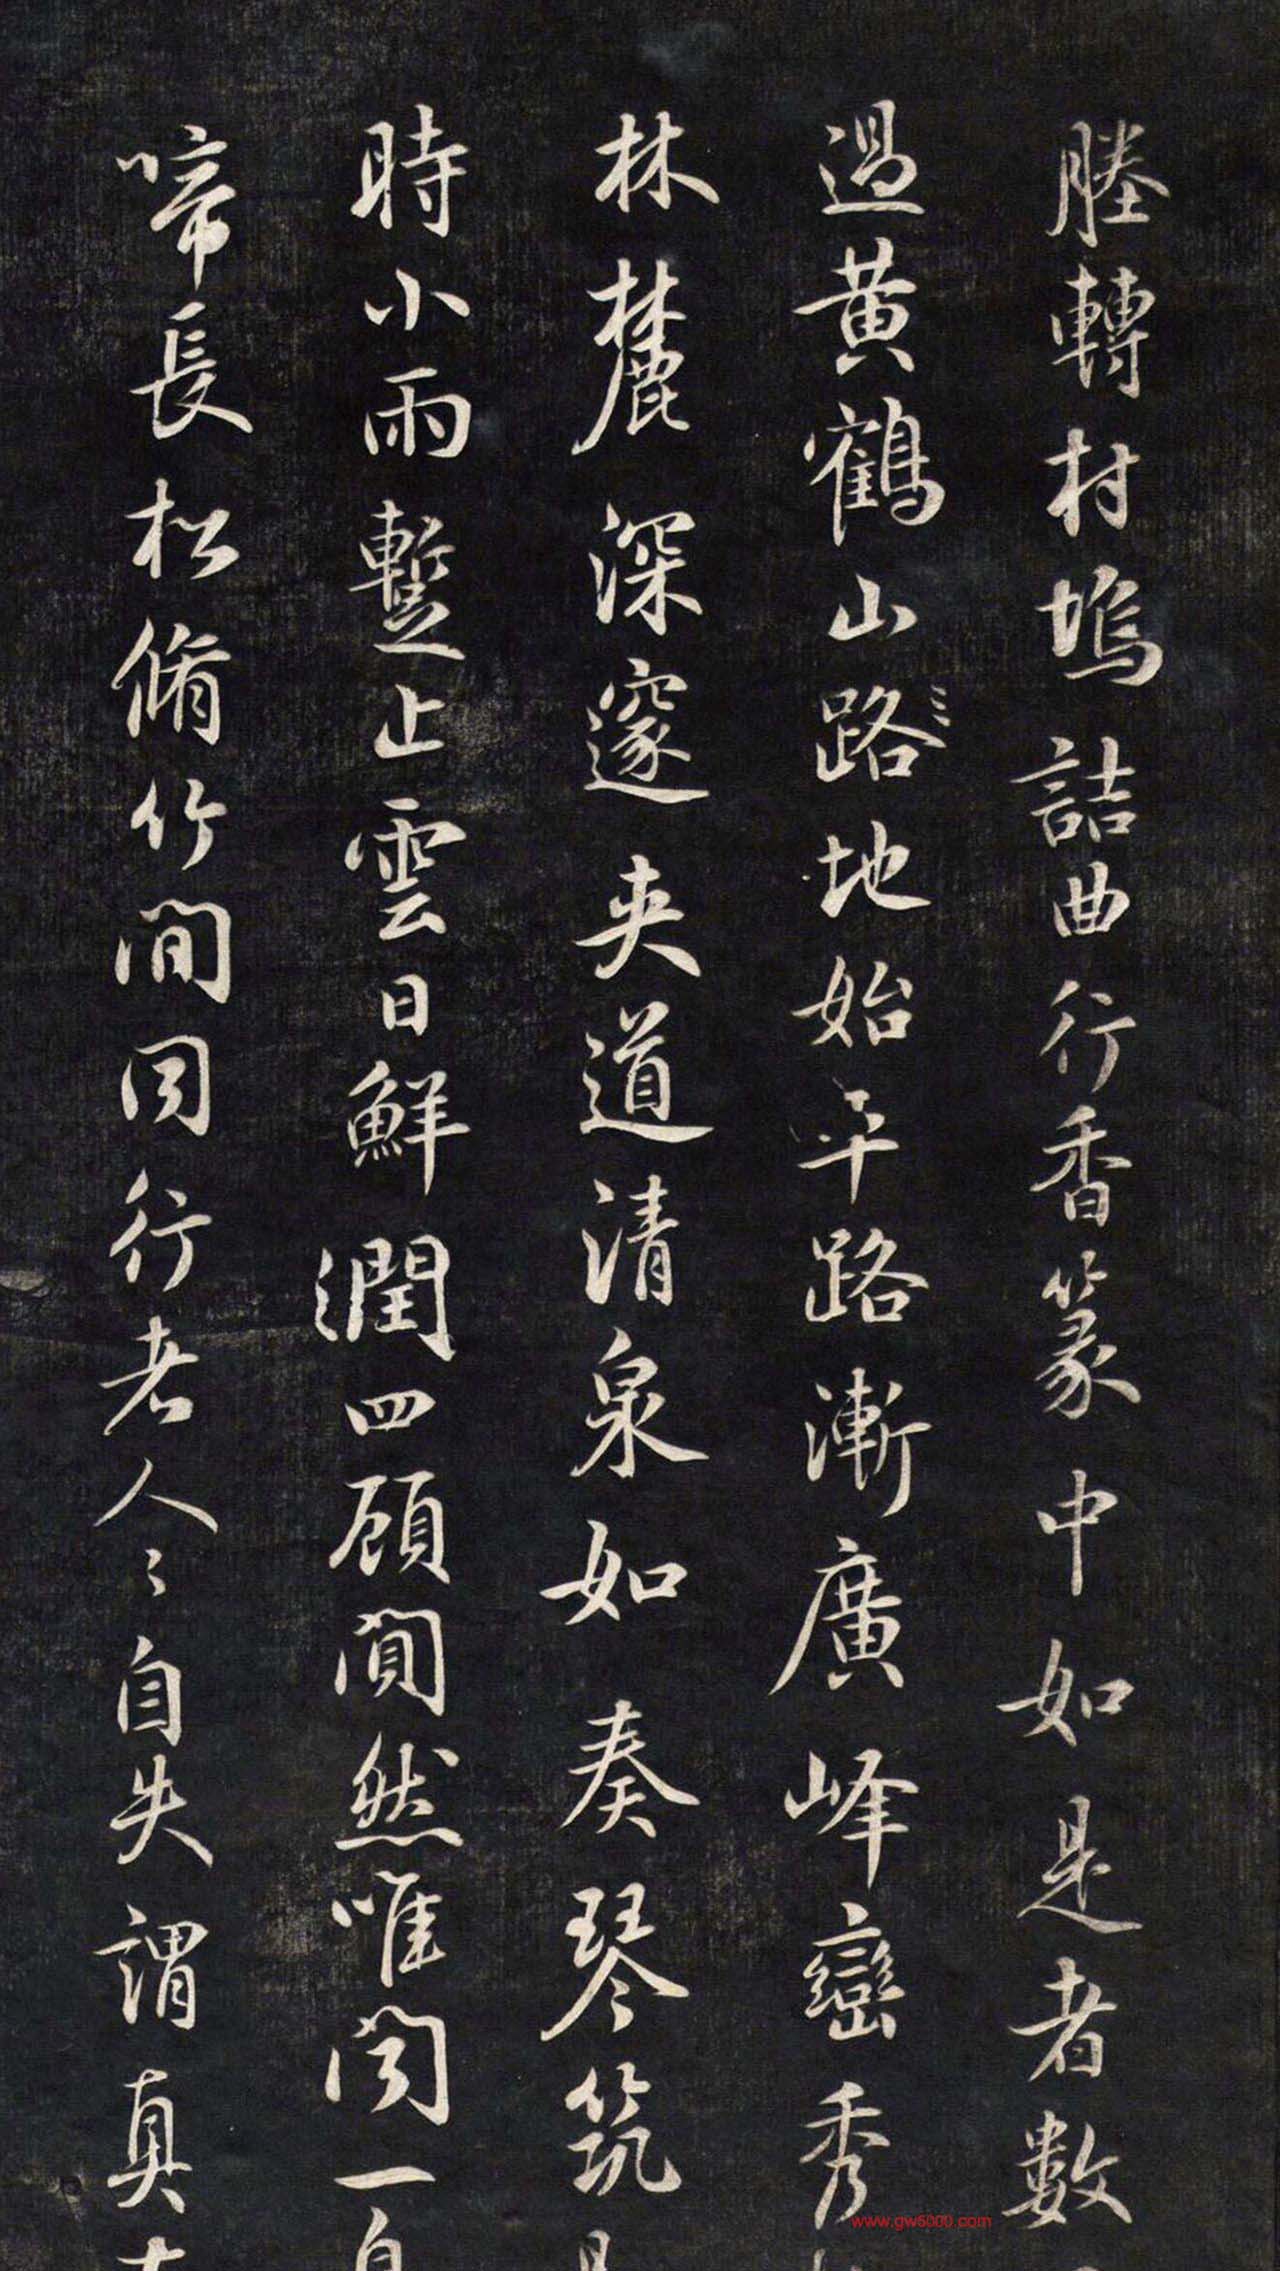 塍轉村塢詰曲行香篆中如是者數
過黃鶴山路地始平路漸廣峰巒秀
林麓深邃夾道清泉如奏琴筑
時小雨暫止雲日鮮潤四顧闃然唯聞一鳥
啼長松脩竹間同行老人〻自失謂真
www.gw5000.com